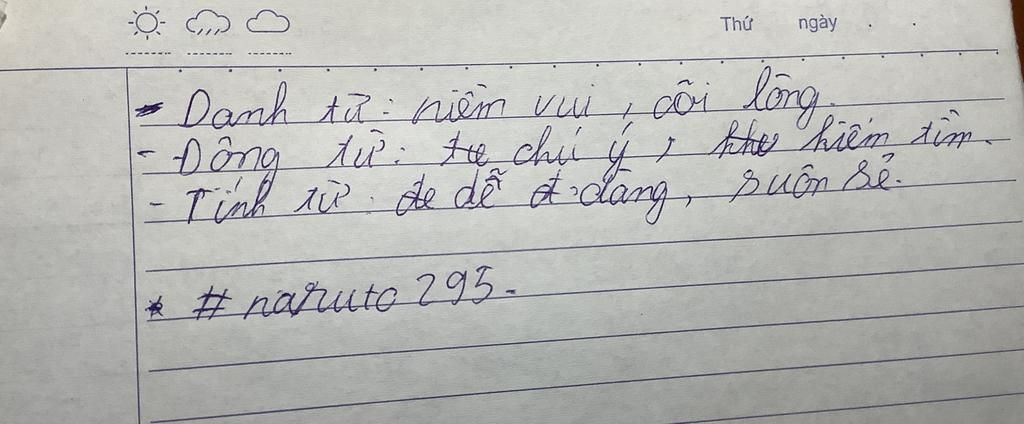 Thứ ngày . .
- Danh từ: niềm vui, cõi lòng.
- Động từ: chú ý, kiếm tìm.
- Tính từ: dễ dàng, suôn sẻ.
* # naruto 295.